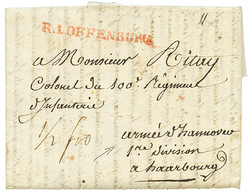 11
R.1.OFFENBURG
a Monsieur Ritay
Colonel du 100e Régiment
d'Infanterie
armée d'hannovre
1re division
a haarbourg